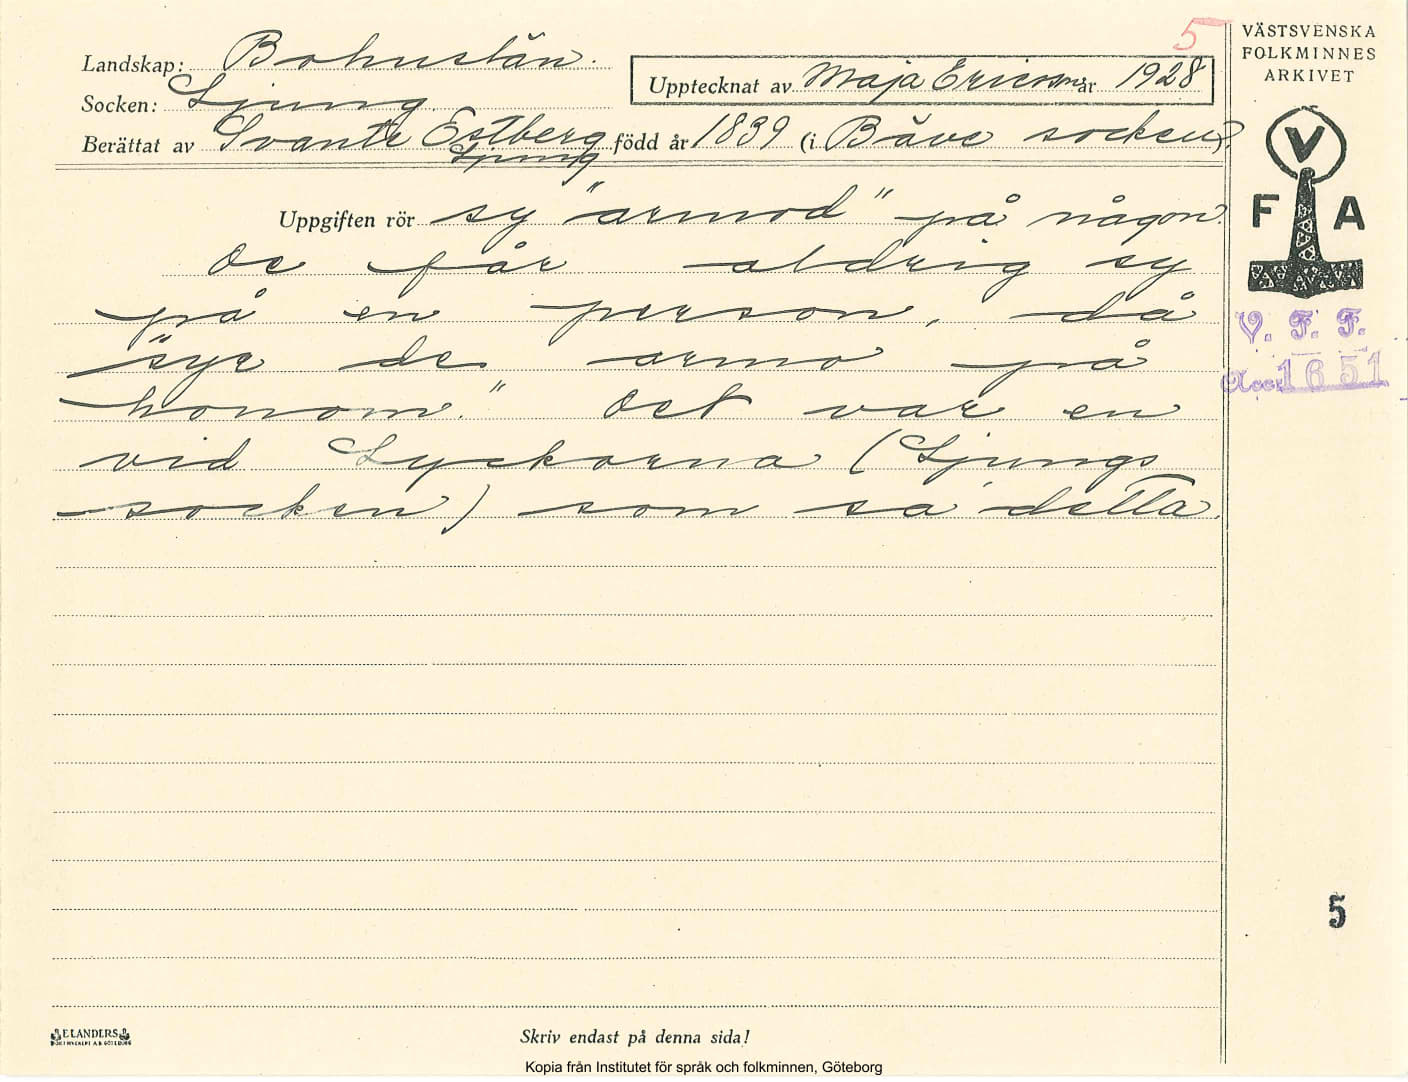 5
VÄSTSVENSKA
FOLKMINNES
ARKIVET
Landskap: Bohuslän.
Socken: Ljung
Upptecknat av Maja Ericson år 1928
Berättat av Svante Estberg född år 1839 (i Bäve socken).
Ljung
V
F A
Uppgiften rör sy "armod" på någon.
De får aldrig sy
på en person, då
"syr de armo på
honom." Det var en
vid Lyckorna (Ljungs
socken) som sa detta.
V. F. F.
Acc. 1651
5
ELANDERS
BOKTRYCKERI A.B. GÖTEBORG
Skriv endast på denna sida!
Kopia från Institutet för språk och folkminnen, Göteborg